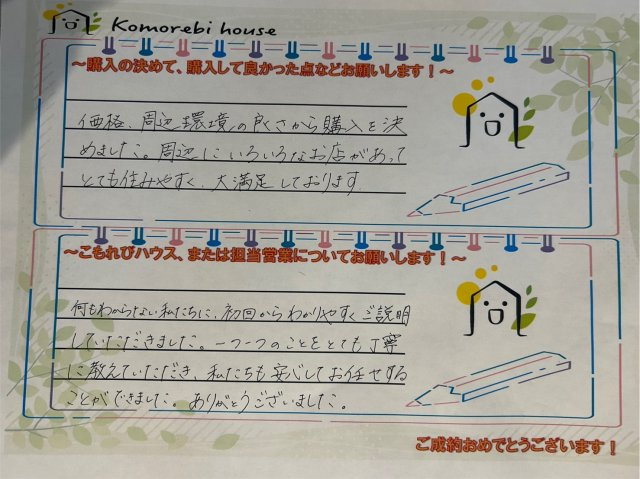 Komorebi house
～購入の決めて、購入して良かった点などお願いします！～
価格、周辺環境の良さから購入を決
めました。周辺にいろいろなお店があって
とても住みやすく、大満足しております
～こもれびハウス、または担当営業についてお願いします！～
何もわからない私たちに、初回からわかりやすくご説明
していただきました。一つ一つのことをとても丁寧
に教えていただき、私たちも安心してお任せする
ことができました。ありがとうございました。
ご成約おめでとうございます！